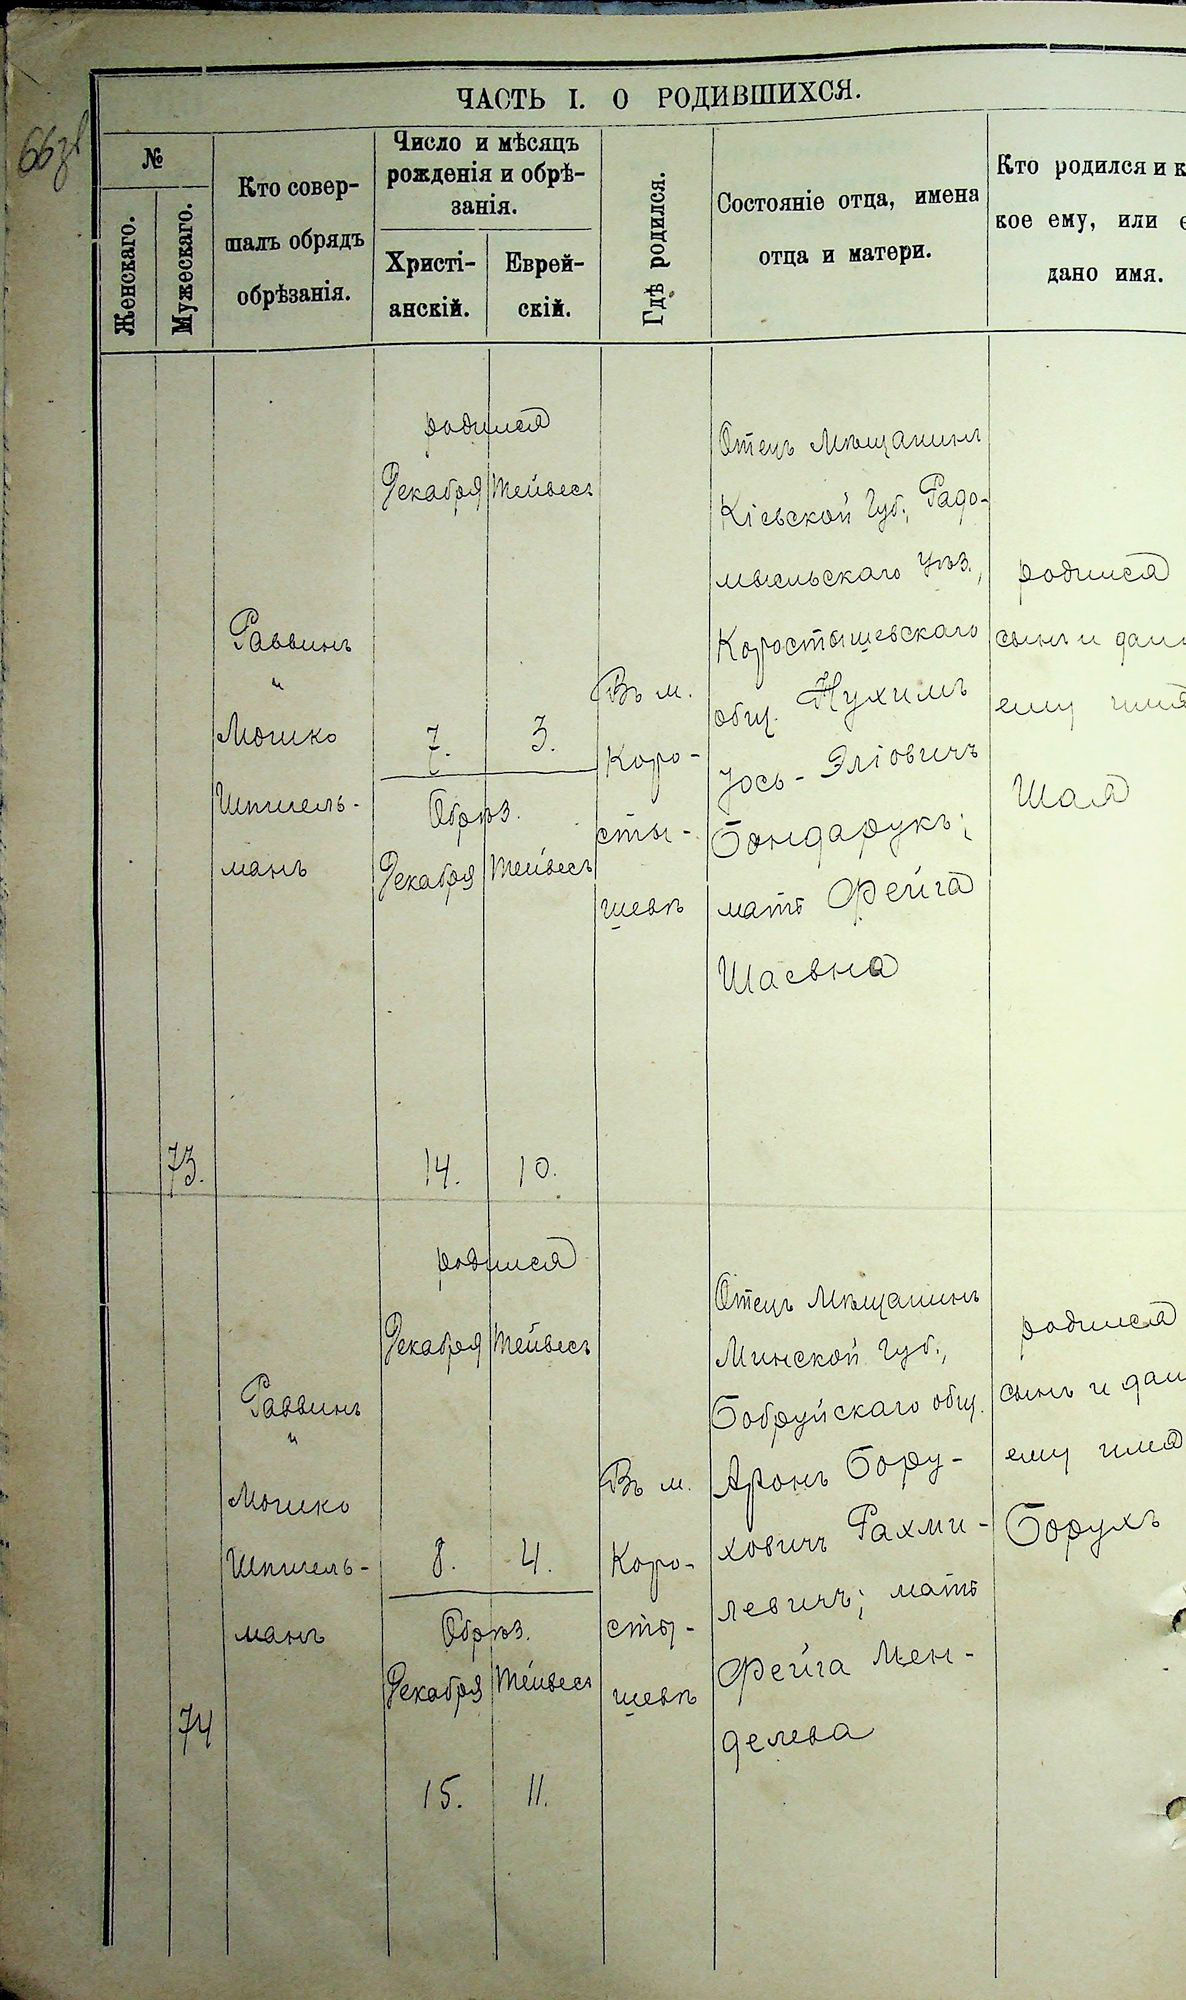 66зв
ЧАСТЬ I. О РОДИВШИХСЯ.
№
Женскаго.
Мужескаго.
Кто совер-
шалъ обрядъ
обрѣзанія.
Число и мѣсяцъ
рожденія и обрѣ-
занія.
Христі-
анскій.
Еврей-
скій.
Гдѣ родился.
Состояніе отца, имена
отца и матери.
Кто родился и к
кое ему, или е
дано имя.
73.
Раввинъ
"
Мошко
Шпигель-
манъ
родился
Декабря Тейвесъ
7. 3.
Обрѣз.
Декабря Тейвесъ
14. 10.
Въ м.
Коро-
сты-
шевѣ
Отецъ Мѣщанинъ
Кіевской Губ., Радо-
мысльскаго Уѣз.,
Коростышевскаго
общ. Нухимъ
Іось-Эліовичъ
Бондарукъ;
мать Фейга
Шаевна
родился
сынъ и дан
ему имя
Шая
74
Раввинъ
"
Мошко
Шпигель-
манъ
родился
Декабря Тейвесъ
8. 4.
Обрѣз.
Декабря Тейвесъ
15. 11.
Въ м.
Коро-
сты-
шевѣ
Отецъ Мѣщанинъ
Минской Губ.,
Бобруйскаго общ.
Аронъ Бору-
ховичъ Рахми-
левичъ; мать
Фейга Мен-
делева
родился
сынъ и дан
ему имя
Борухъ